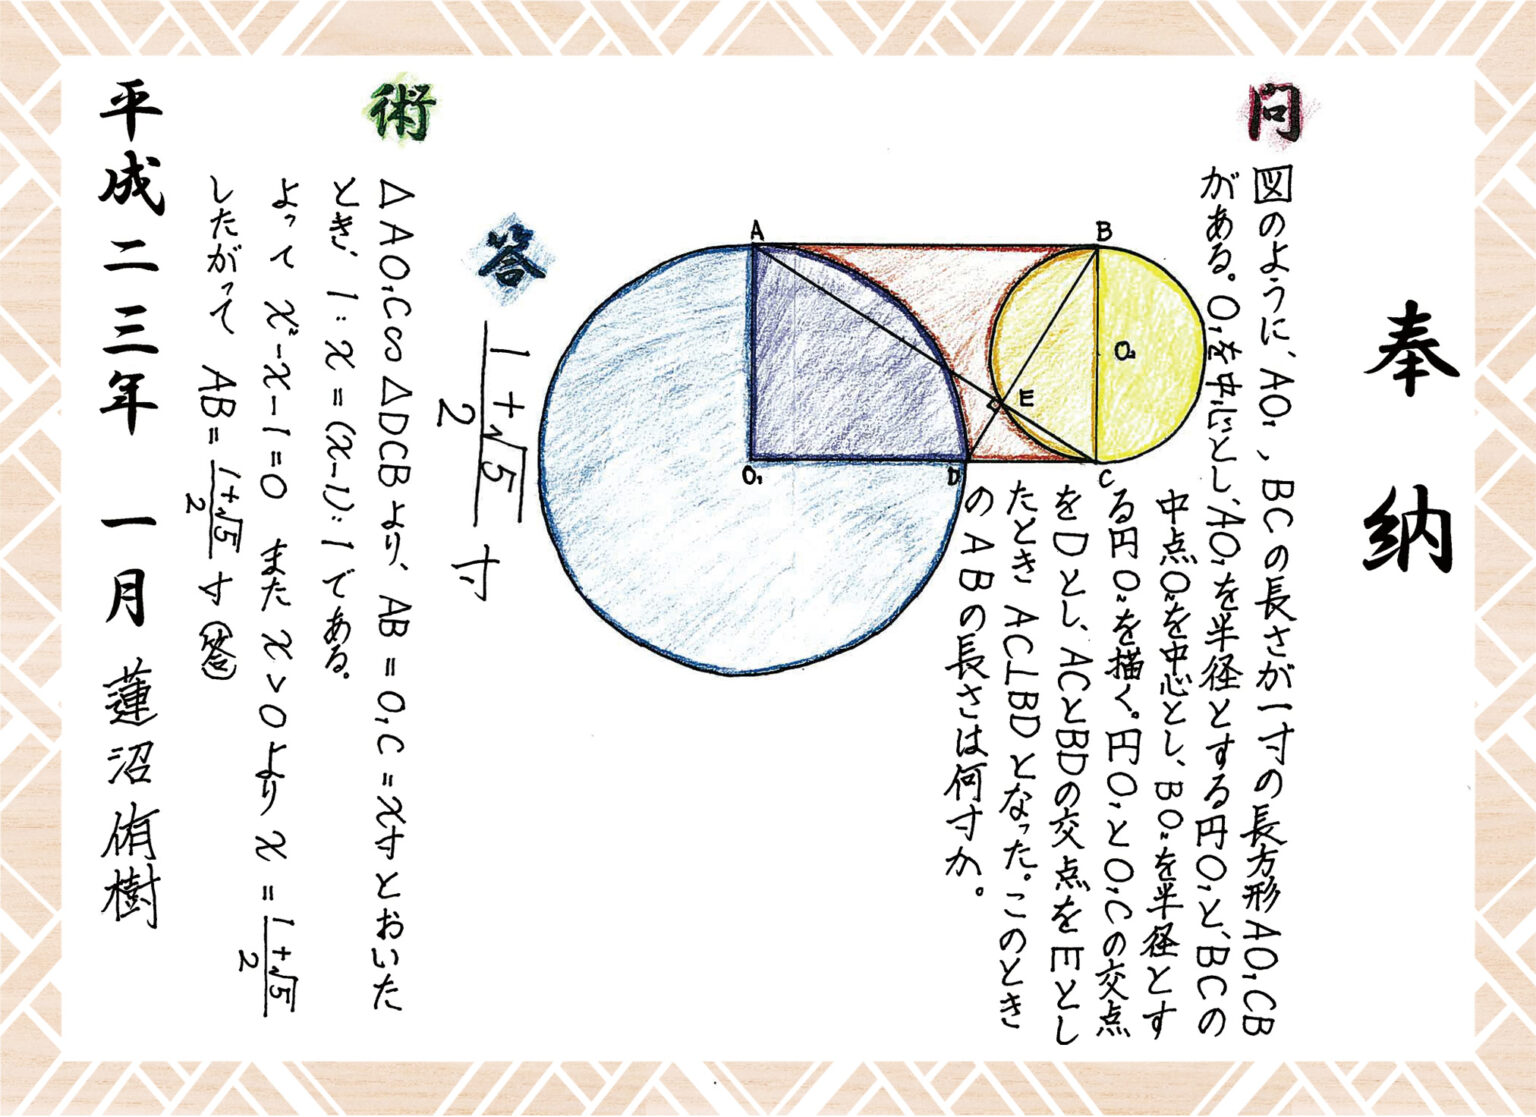 奉納
問
図のように、AO₁、BCの長さが一寸の長方形AO₁CB
がある。O₁を中心とし、AO₁を半径とする円O₁と、BCの
中点O₂を中心とし、BO₂を半径とす
る円O₂を描く。円O₁とO₁Cの交点
をDとし、ACとBDの交点をEとし
たとき AC⊥BDとなった。このとき
のABの長さは何寸か。
A
B
O₂
E
O₁
D
C
答
1+√5/2 寸
術
△AO₁C∽△DCBより、AB=O₁C=x寸とおいた
とき、1:x=(x-1):1である。
よって x²-x-1=0 また x>0より x=1+√5/2
したがって AB=1+√5/2 寸 (答)
平成二三年 一月 蓮沼侑樹